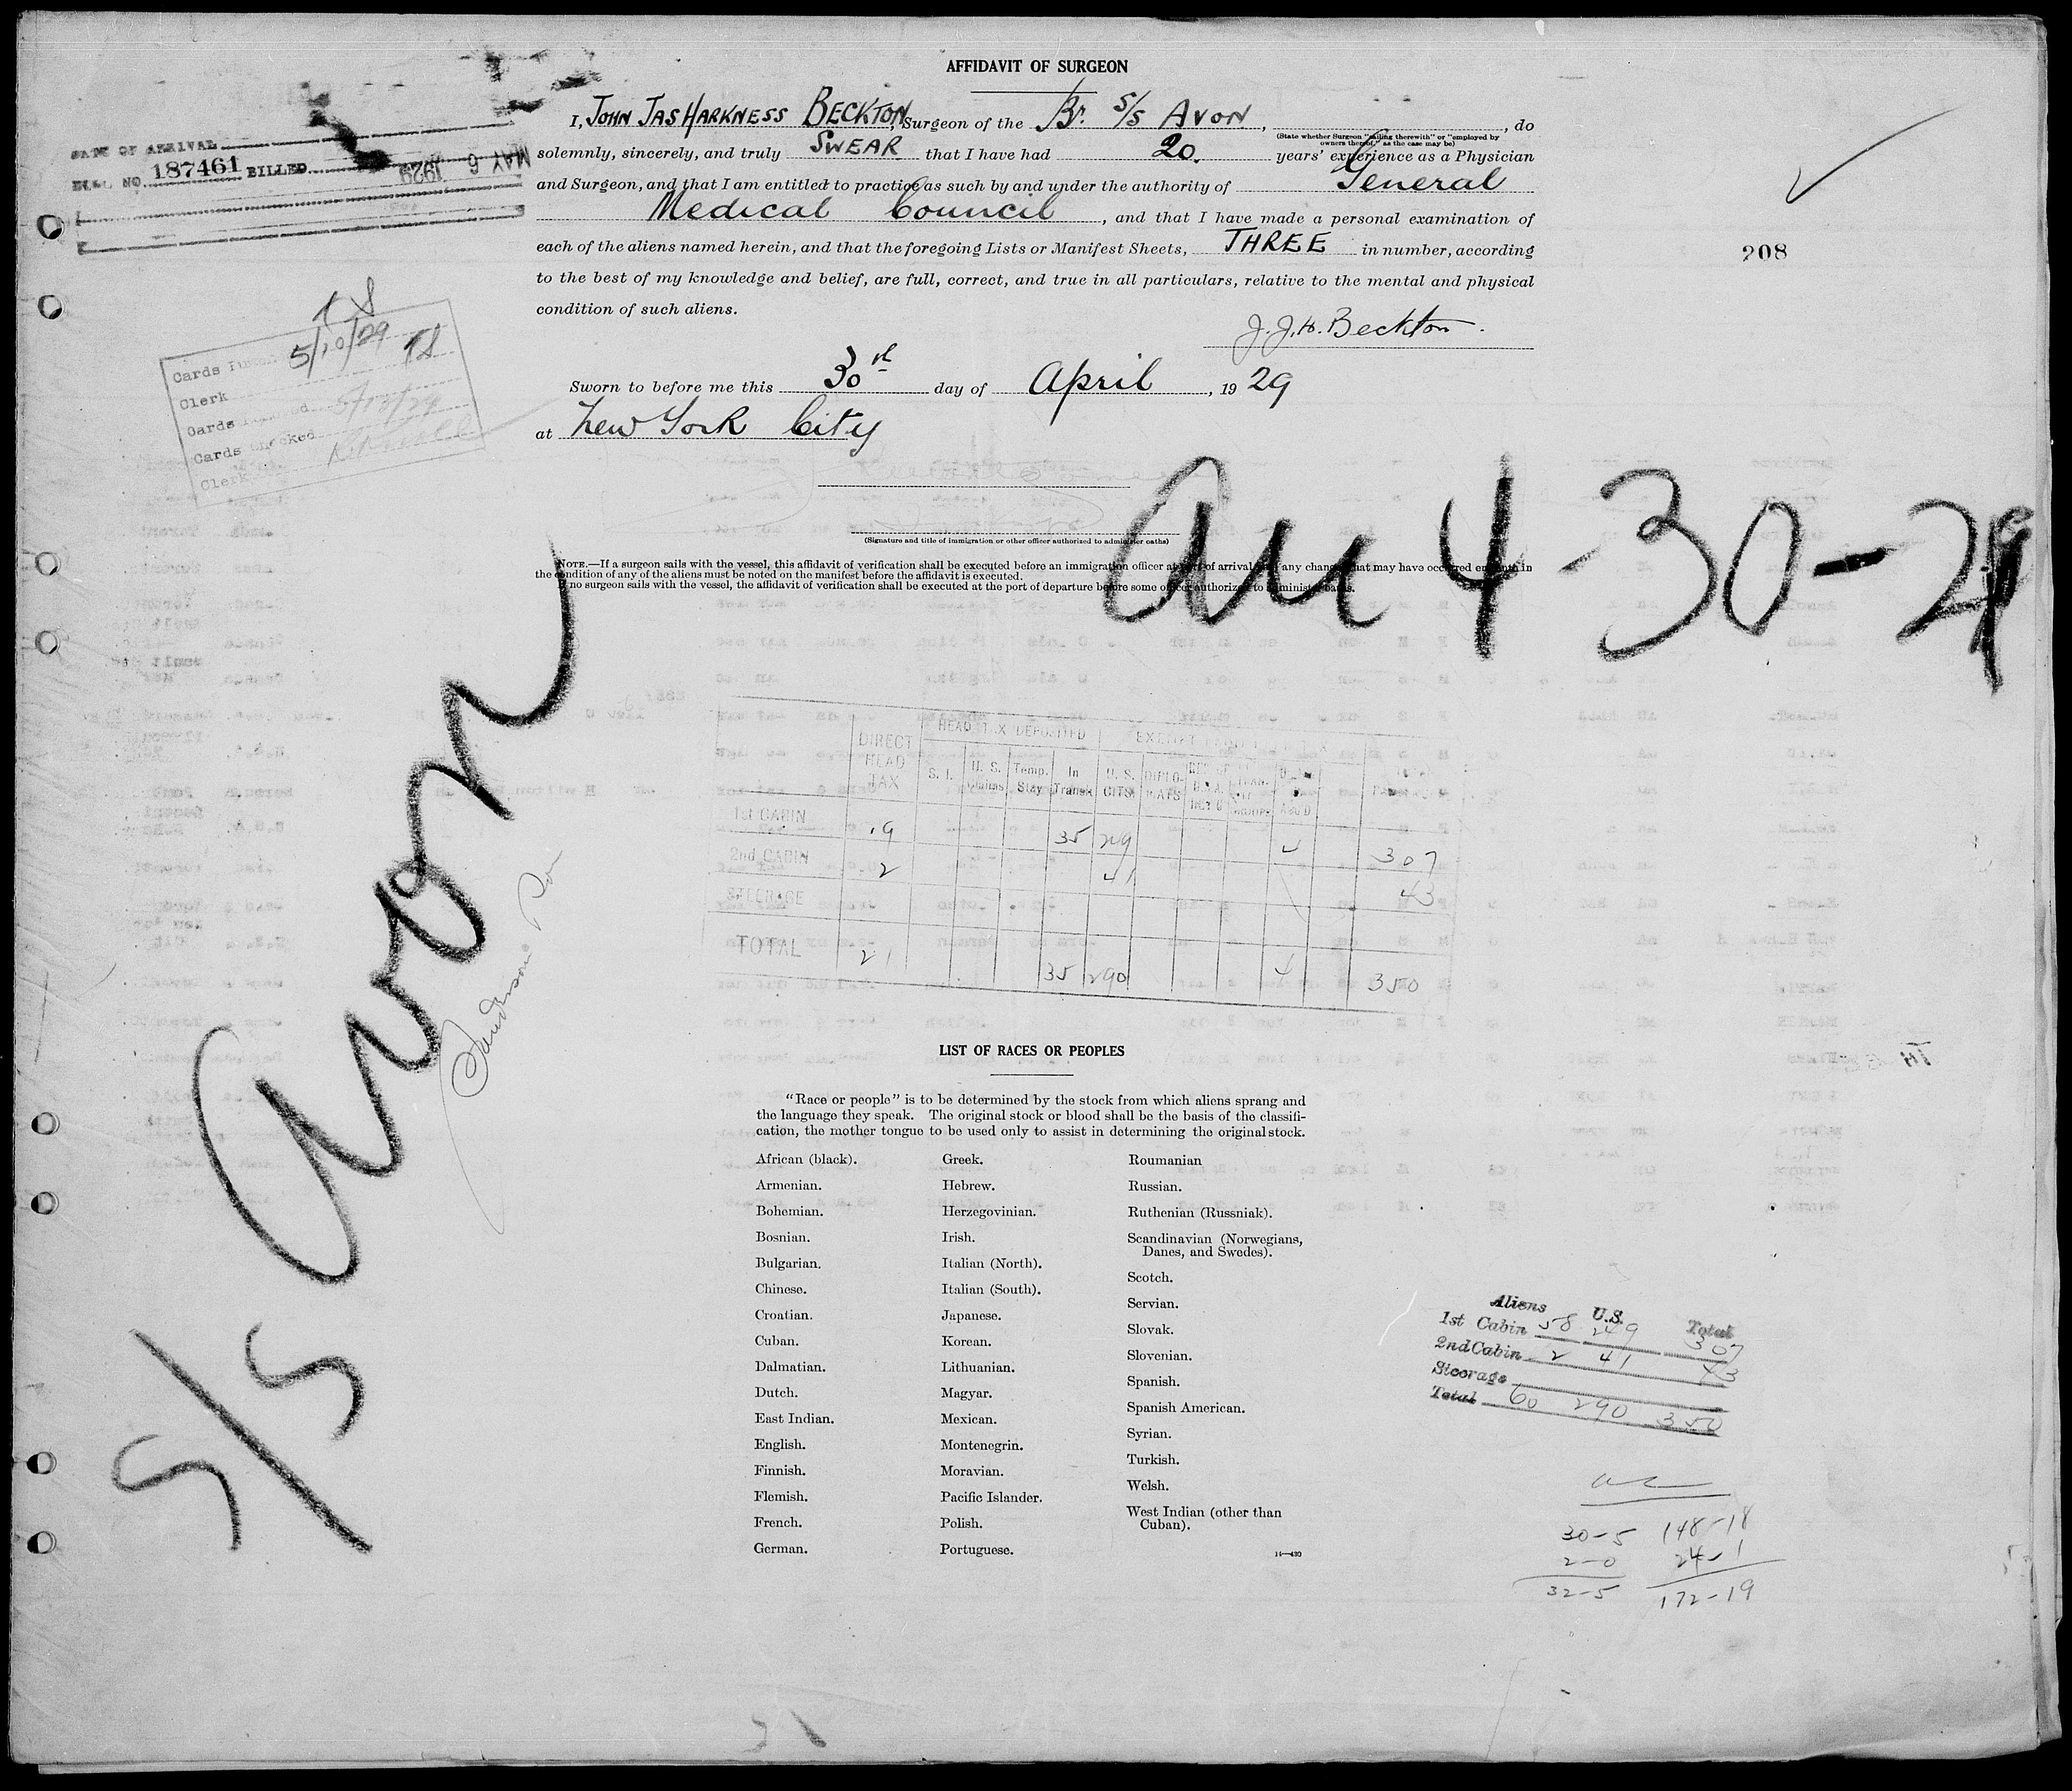 AFFIDAVIT OF SURGEON
I, JOHN JAS HARKNESS BECKTON, Surgeon of the Br. S/S AVON, , do
(State whether Surgeon "sailing therewith" or "employed by owners thereof," as the case may be)
solemnly, sincerely, and truly SWEAR that I have had 20. years' experience as a Physician
and Surgeon, and that I am entitled to practice as such by and under the authority of General
Medical Council, and that I have made a personal examination of
each of the aliens named herein, and that the foregoing Lists or Manifest Sheets, THREE in number, according
to the best of my knowledge and belief, are full, correct, and true in all particulars, relative to the mental and physical
condition of such aliens.
J. J. H. Beckton.
Sworn to before me this 30th day of April, 1929
at New York City
(Signature and title of immigration or other officer authorized to administer oaths)
NOTE.—If a surgeon sails with the vessel, this affidavit of verification shall be executed before an immigration officer at port of arrival and any change that may have occurred en route in
the condition of any of the aliens must be noted on the manifest before the affidavit is executed.
If no surgeon sails with the vessel, the affidavit of verification shall be executed at the port of departure before some officer authorized to administer oaths.
DATE OF ARRIVAL
BILL NO. 187461 BILLED MAY 6 1929
208
5/10/29
Cards
Clerk
Cards 5/13/29
Cards Checked
Clerk
4-30-29
S/S Avon
DIRECT HEAD TAX
HEAD TAX DEPOSITED
S. I.
U. S. Claims
Temp. Stay
In Transit
U. S. CITS.
DIPLO-MATS
1st CABIN 19 35 249 4 307
2nd CABIN 2 41 43
STEERAGE
TOTAL 21 35 290 4 350
LIST OF RACES OR PEOPLES
"Race or people" is to be determined by the stock from which aliens sprang and
the language they speak. The original stock or blood shall be the basis of the classifi-
cation, the mother tongue to be used only to assist in determining the original stock.
African (black).
Armenian.
Bohemian.
Bosnian.
Bulgarian.
Chinese.
Croatian.
Cuban.
Dalmatian.
Dutch.
East Indian.
English.
Finnish.
Flemish.
French.
German.
Greek.
Hebrew.
Herzegovinian.
Irish.
Italian (North).
Italian (South).
Japanese.
Korean.
Lithuanian.
Magyar.
Mexican.
Montenegrin.
Moravian.
Pacific Islander.
Polish.
Portuguese.
Roumanian
Russian.
Ruthenian (Russniak).
Scandinavian (Norwegians,
Danes, and Swedes).
Scotch.
Servian.
Slovak.
Slovenian.
Spanish.
Spanish American.
Syrian.
Turkish.
Welsh.
West Indian (other than
Cuban).
14—430
Aliens U.S. Total
1st Cabin 58 249 307
2nd Cabin 2 41 43
Steerage
Total 60 290 350
30-5 148-18
2-0 24-1
32-5 172-19